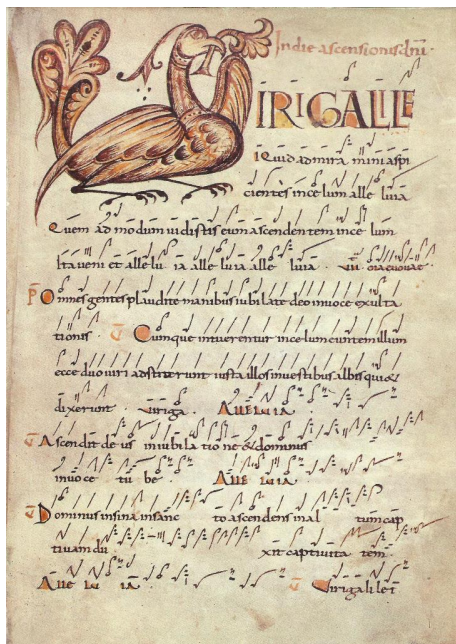 In die ascensionis dñi.
VIRI GALILE
I Quid admira mini aspi
cientes in celum alle luia
Quem ad modum uidistis eum ascendentem in ce lum
Ita ueni et alle lu ia alle luia alle luia .
P Omnes gentes plaudite manibus iubilate deo in uoce exulta
tionis . V Cumque intuerentur in celum euntem illum
ecce duo uiri adstiterunt iuxta illos in uestibus albis qui &
dixerunt . uiri ga . Alle lu ia
V Ascendit deus in iubila tio ne & dominus
in uoce tu be . Alle lu ia
V Dominus in sina in sanc to ascendens in al tum cap
tiuam du xit captiuita tem .
Alle lu ia . V Uiri galile i